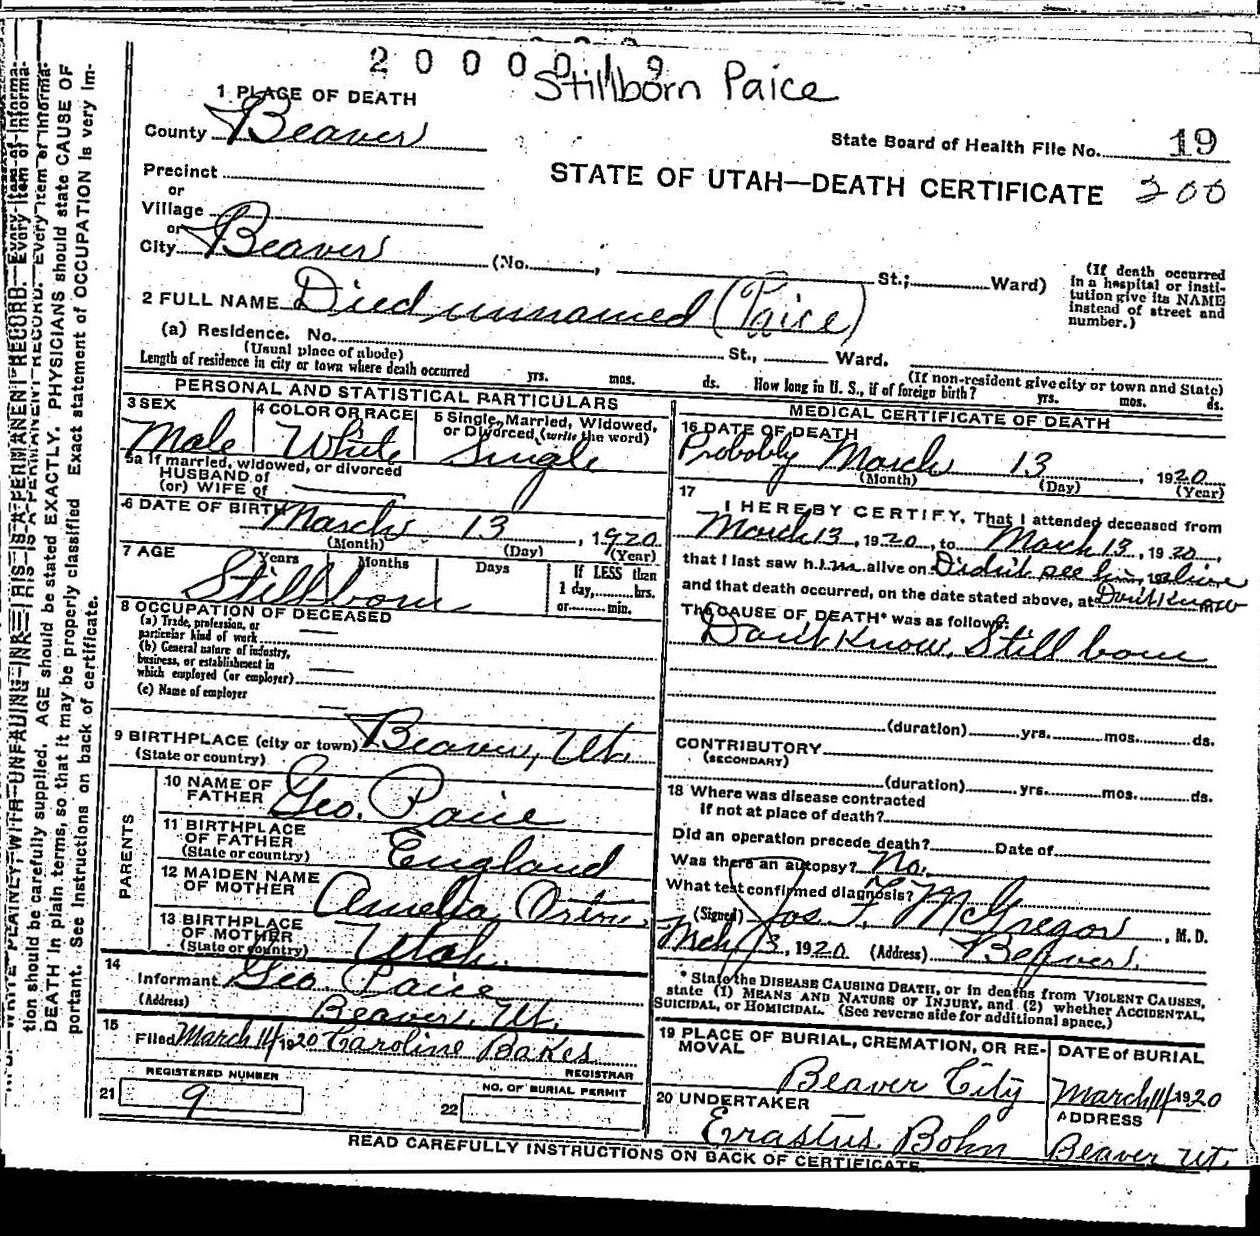 2 0 0 0 0 1 9
Stillborn Paice
1 PLACE OF DEATH
County Beaver
State Board of Health File No. 19
Precinct
or
Village
or
City Beaver (No. , St.; Ward)
STATE OF UTAH—DEATH CERTIFICATE 200
(If death occurred
in a hospital or insti-
tution give its NAME
instead of street and
number.)
2 FULL NAME Died unnamed (Paice)
(a) Residence. No. St., Ward.
(Usual place of abode) (If non-resident give city or town and State)
Length of residence in city or town where death occurred yrs. mos. ds. How long in U. S., if of foreign birth? yrs. mos. ds.
PERSONAL AND STATISTICAL PARTICULARS
3 SEX Male
4 COLOR OR RACE White
5 Single, Married, Widowed,
or Divorced (write the word)
Single
5a If married, widowed, or divorced
HUSBAND of
(or) WIFE of
6 DATE OF BIRTH March 13, 1920
(Month) (Day) (Year)
7 AGE Years Months Days If LESS than
1 day, hrs.
or min.
Stillborn
8 OCCUPATION OF DECEASED
(a) Trade, profession, or
particular kind of work
(b) General nature of industry,
business, or establishment in
which employed (or employer)
(c) Name of employer
9 BIRTHPLACE (city or town) Beaver, Ut.
(State or country)
PARENTS
10 NAME OF
FATHER Geo. Paice
11 BIRTHPLACE
OF FATHER
(State or country) England
12 MAIDEN NAME
OF MOTHER Amelia Orton
13 BIRTHPLACE
OF MOTHER
(State or country) Utah.
14
Informant Geo Paice
(Address) Beaver, Ut.
15
Filed March 1920 Caroline Bakes
REGISTRAR
REGISTERED NUMBER
21 9
NO. OF BURIAL PERMIT
22
MEDICAL CERTIFICATE OF DEATH
16 DATE OF DEATH
Probably March 13, 1920
(Month) (Day) (Year)
17
I HEREBY CERTIFY, That I attended deceased from
March 13, 1920, to March 13, 1920,
that I last saw him alive on Didn't see him alive
and that death occurred, on the date stated above, at Don't Know
The CAUSE OF DEATH* was as follows:
Don't Know. Still born
(duration) yrs. mos. ds.
CONTRIBUTORY
(SECONDARY)
(duration) yrs. mos. ds.
18 Where was disease contracted
if not at place of death?
Did an operation precede death? Date of
Was there an autopsy? No.
What test confirmed diagnosis?
(Signed) Jos F McGregor, M. D.
Mch 13, 1920 (Address) Beaver.
* State the DISEASE CAUSING DEATH, or in deaths from VIOLENT CAUSES,
state (1) MEANS AND NATURE OF INJURY, and (2) whether ACCIDENTAL,
SUICIDAL, or HOMICIDAL. (See reverse side for additional space.)
19 PLACE OF BURIAL, CREMATION, OR RE-
MOVAL
Beaver City
DATE of BURIAL
March 1920
20 UNDERTAKER
Erastus Bohn
ADDRESS
Beaver Ut.
READ CAREFULLY INSTRUCTIONS ON BACK OF CERTIFICATE
WRITE PLAINLY, WITH UNFADING INK—THIS IS A PERMANENT RECORD. Every item of informa-
tion should be carefully supplied. AGE should be stated EXACTLY. PHYSICIANS should state CAUSE OF
DEATH in plain terms, so that it may be properly classified Exact statement of OCCUPATION is very im-
portant. See instructions on back of certificate.